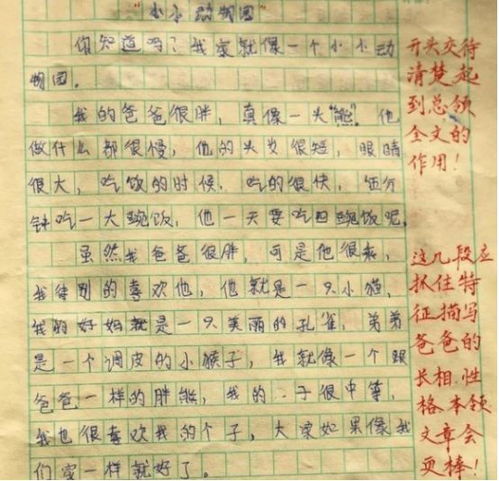 “小小动物园”
你知道吗?我家就像一个小小动
物园。
我的爸爸很胖,真像一头“熊”。他
做什么都很慢,他的头发很短,眼睛
很大,吃饭的时候,吃的很快,五分
钟吃一大碗饭,他一天要吃四碗饭呢。
虽然我爸爸很胖,可是他很柔,
我特别的喜欢他,他就是一只小猫,
我的好妈就是一只美丽的孔雀,弟弟
是一个调皮的小猴子,我就像一个跟
爸爸一样的胖熊,我的个子很中等,
我也很喜欢我的个子,大家如果像我
们家一样就好了。
开头交待
清楚起
到总领
全文的
作用!
这几段应
抓住特
征描写
爸爸的
长相.性
格.本领
文章会
更棒!